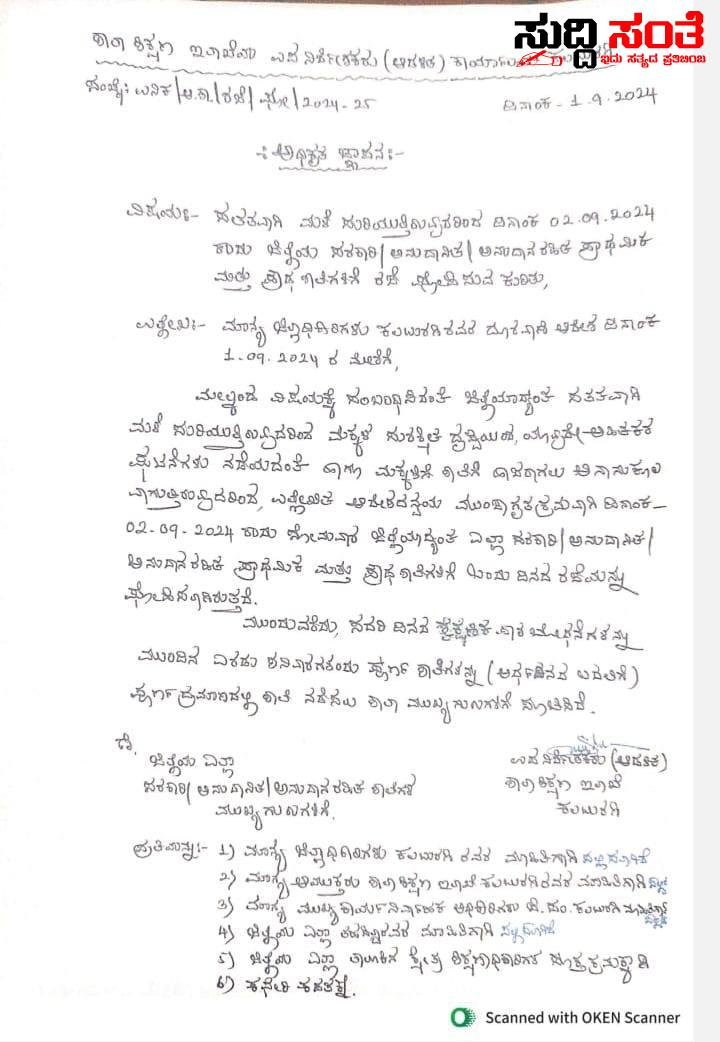 ಸುದ್ದಿ ಸಂತೆ
ಇದು ಸತ್ಯದ ಪ್ರತಿಬಿಂಬ
ಶಾಲಾ ಶಿಕ್ಷಣ ಇಲಾಖೆಯ ಉಪನಿರ್ದೇಶಕರು (ಆಡಳಿತ)
ಸಂಖ್ಯೆ: ಉನಿಕ/ಆ.ಶಾ/ರಜೆ/ಘೋ/2024-25 ದಿನಾಂಕ - 1.9.2024
-: ಅಧಿಕೃತ ಜ್ಞಾಪನ :-
ವಿಷಯ:- ಸತತವಾಗಿ ಮಳೆ ಸುರಿಯುತ್ತಿರುವುದರಿಂದ ದಿನಾಂಕ 02.09.2024
ರಂದು ಜಿಲ್ಲೆಯ ಸರಕಾರಿ/ಅನುದಾನಿತ/ಅನುದಾನ ರಹಿತ ಪ್ರಾಥಮಿಕ
ಮತ್ತು ಪ್ರೌಢ ಶಾಲೆಗಳಿಗೆ ರಜೆ ಘೋಷಿಸುವ ಕುರಿತು,
ಉಲ್ಲೇಖ:- ಮಾನ್ಯ ಜಿಲ್ಲಾಧಿಕಾರಿಗಳು ಕಲಬುರಗಿ ರವರ ದೂರವಾಣಿ ಆದೇಶ ದಿನಾಂಕ
1.09.2024 ರ ಮೇರೆಗೆ,
ಮೇಲ್ಕಂಡ ವಿಷಯಕ್ಕೆ ಸಂಬಂಧಿಸಿದಂತೆ ಜಿಲ್ಲೆಯಾದ್ಯಂತ ಸತತವಾಗಿ
ಮಳೆ ಸುರಿಯುತ್ತಿರುವುದರಿಂದ ಮಕ್ಕಳ ಸುರಕ್ಷಿತ ದೃಷ್ಟಿಯಿಂದ, ಯಾವುದೇ ಅಹಿತಕರ
ಘಟನೆಗಳು ನಡೆಯದಂತೆ ಹಾಗೂ ಮಕ್ಕಳಿಗೆ ಶಾಲೆಗೆ ಹಾಜರಾಗಲು ಅನಾನುಕೂಲ
ವಾಗುತ್ತಿರುವುದರಿಂದ, ಉಲ್ಲೇಖಿತ ಆದೇಶದನ್ವಯ ಮುಂಜಾಗ್ರತಕ್ರಮವಾಗಿ ದಿನಾಂಕ-
02-09-2024 ರಂದು ಸೋಮವಾರ ಜಿಲ್ಲೆಯಾದ್ಯಂತ ಎಲ್ಲಾ ಸರಕಾರಿ/ಅನುದಾನಿತ/
ಅನುದಾನ ರಹಿತ ಪ್ರಾಥಮಿಕ ಮತ್ತು ಪ್ರೌಢ ಶಾಲೆಗಳಿಗೆ ಒಂದು ದಿನದ ರಜೆಯನ್ನು
ಘೋಷಿಸಲಾಗಿರುತ್ತದೆ.
ಮುಂದುವರೆದು, ಸದರಿ ದಿನದ ಶೈಕ್ಷಣಿಕ ಪಾಠ ಬೋಧನೆಗಳನ್ನು
ಮುಂದಿನ ಎರಡು ಶನಿವಾರಗಳಂದು ಪೂರ್ಣ ಶಾಲೆಗಳನ್ನು (ಅರ್ಧದಿನದ ಬದಲಿಗೆ)
ಪೂರ್ಣಪ್ರಮಾಣದಲ್ಲಿ ಶಾಲೆ ನಡೆಸಲು ಶಾಲಾ ಮುಖ್ಯಗುರುಗಳಿಗೆ ಸೂಚಿಸಿದೆ.
ಗೆ,
ಜಿಲ್ಲೆಯ ಎಲ್ಲಾ
ಸರಕಾರಿ/ಅನುದಾನಿತ/ಅನುದಾನ ರಹಿತ ಶಾಲೆಗಳ
ಮುಖ್ಯಗುರುಗಳಿಗೆ.
ಉಪನಿರ್ದೇಶಕರು (ಆಡಳಿತ)
ಶಾಲಾ ಶಿಕ್ಷಣ ಇಲಾಖೆ
ಕಲಬುರಗಿ
ಪ್ರತಿಯನ್ನು:- 1) ಮಾನ್ಯ ಜಿಲ್ಲಾಧಿಕಾರಿಗಳು ಕಲಬುರಗಿ ರವರ ಮಾಹಿತಿಗಾಗಿ ಸಲ್ಲಿಸಲಾಗಿದೆ
2) ಮಾನ್ಯ ಆಯುಕ್ತರು ಶಾಲಾ ಶಿಕ್ಷಣ ಇಲಾಖೆ ಕಲಬುರಗಿ ರವರ ಮಾಹಿತಿಗಾಗಿ
3) ಮಾನ್ಯ ಮುಖ್ಯ ಕಾರ್ಯನಿರ್ವಾಹಕ ಅಧಿಕಾರಿಗಳು ಜಿ.ಪಂ. ಕಲಬುರಗಿ ಮಾಹಿತಿಗಾಗಿ
4) ಜಿಲ್ಲೆಯ ಎಲ್ಲಾ ರವರ ಮಾಹಿತಿಗಾಗಿ ಸಲ್ಲಿಸಲಾಗಿದೆ
5) ಜಿಲ್ಲೆಯ ಎಲ್ಲಾ ತಾಲೂಕಿನ ಕ್ಷೇತ್ರ ಶಿಕ್ಷಣಾಧಿಕಾರಿಗಳ ಸೂಕ್ತ ಕ್ರಮಕ್ಕಾಗಿ
6) ಕಛೇರಿ ಕಡತಕ್ಕೆ.
Scanned with OKEN Scanner